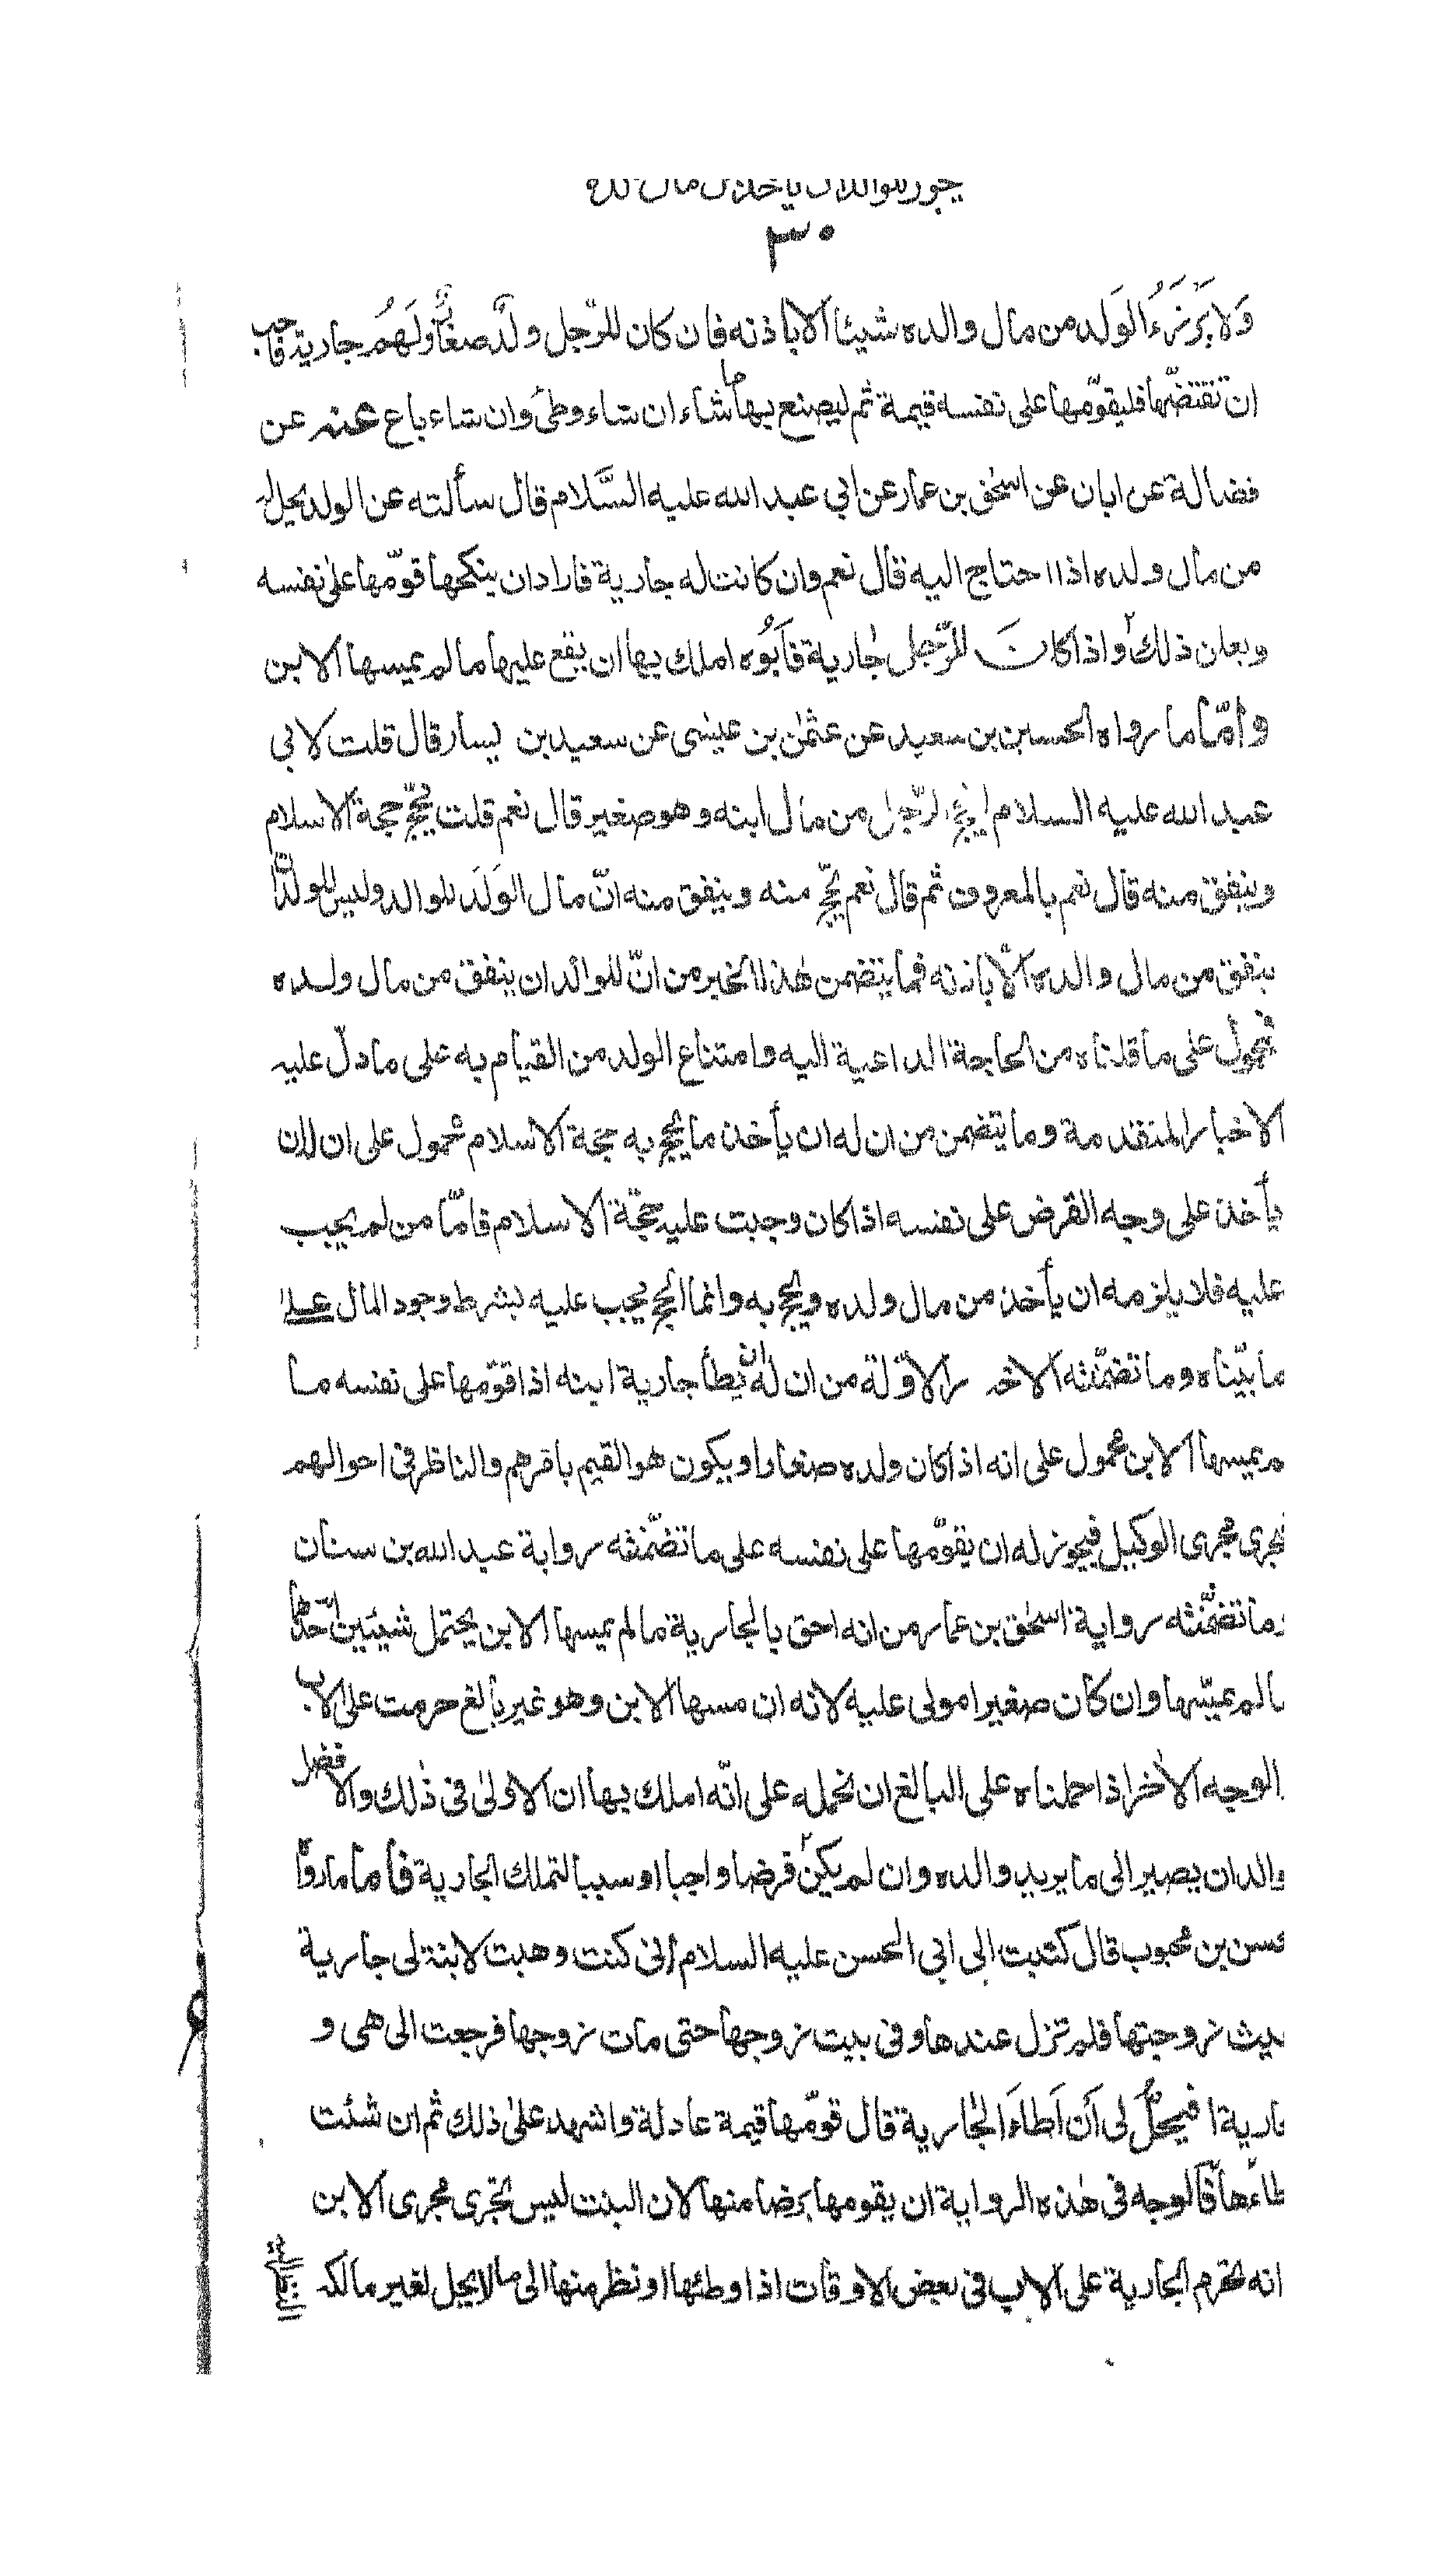 يجوز للوالد ان ياخذ من مال ولده
٣٠
ولا يرزء الولد من مال والده شيئا الا باذنه فان كان للرّجل ولد صغار ولهم جارية فاحب
ان تقتضّها فليقوّمها على نفسه قيمة ثم ليصنع بها ما شاء ان شاء وطئ وان شاء باع عنه عن
فضالة عن ابان عن اسحٰق بن عمار عن ابي عبد الله عليه السَّلام قال سألته عن الولد يحل
من مال ولده اذا احتاج اليه قال نعم وان كانت له جارية فاراد ان ينكحها قوّمها على نفسه
ويعلن ذلك واذا كانَ للرّجل جارية فأبُوه املك بها ان يقع عليها ما لم يمسها الابن
وأمّا ما رواه الحسين بن سعيد عن عثمٰن بن عيسى عن سعيد بن يسار قال قلت لابي
عبد الله عليه السلام ايحج الرّجل من مال ابنه وهو صغير قال نعم قلت يحجّ حجة الاسلام
وينفق منه قال نعم بالمعروف ثم قال نعم يحجّ منه وينفق منه انّ مال الوَلَد للوالد وليس للولد ان
ينفق من مال والده الّا باذنه فما يتضمن هٰذا الخبر من انّ للوالد ان ينفق من مال ولده
فمحمول على ما قلناه من الحاجة الداعية اليه وامتناع الولد من القيام به على ما دلّ عليه
الاخبار المتقدمة وما يتضمن من ان له ان يأخذ ما يحج به حجة الاسلام محمول على ان له ان
يأخذ على وجه القرض على نفسه اذا كان وجبت عليه حجّة الاسلام فامّا من لم يجب
عليه فلا يلزمه ان يأخذ من مال ولده ويحج به وانما الحج يجب عليه بشرط وجود المال على
ما بيّناه وما تضمّنته الاخـ ـر الاوّلة من ان له ان يطأ جارية ابنه اذا قوّمها على نفسه ما
لم يمسها الابن محمول على انه اذا كان ولده صغارا ويكون هو القيم بامرهم والناظر في احوالهم
فيجرى مجرى الوكيل فيجوز له ان يقوّمها على نفسه على ما تضّمنته رواية عبد الله بن سنان
وما تضمّنته رواية اسحٰق بن عمار من انه احق بالجارية ما لم يمسها الابن يحتمل شيئين احدهما
ما لم يمسّها وان كان صغيرا مولى عليه لانه ان مسها الابن وهو غير بالغ حرمت على الاب
والوجه الاٰخر اذا حملناه على البالغ ان نحمله على انّه املك بها ان الاولىٰ في ذٰلك والافضل
والد ان يصير الى ما يريد والده وان لم يكن قرضا واجبا او سببا لتملك الجارية فأما ما رواه
حسن بن محبوب قال كتبت الى ابي الحسن عليه السلام انى كنت وهبت لابنة لى جارية
حيث زوجتها فلم تزل عندها وفى بيت زوجها حتى مات زوجها فرجعت الى هى و
جارية افيحلُّ لى أن أطاءَ الجارية قال قوّمها قيمة عادلة واشهد على ذلك ثم ان شئت
طاءها فالوجه في هٰذه الرواية ان يقومها برضا منها لان البنت ليس تجرى مجرى الابن
انه تحرم الجارية على الاب في بعض الاوقات اذا وطئها او نظر منها الى ما لا يحل لغير مالكه